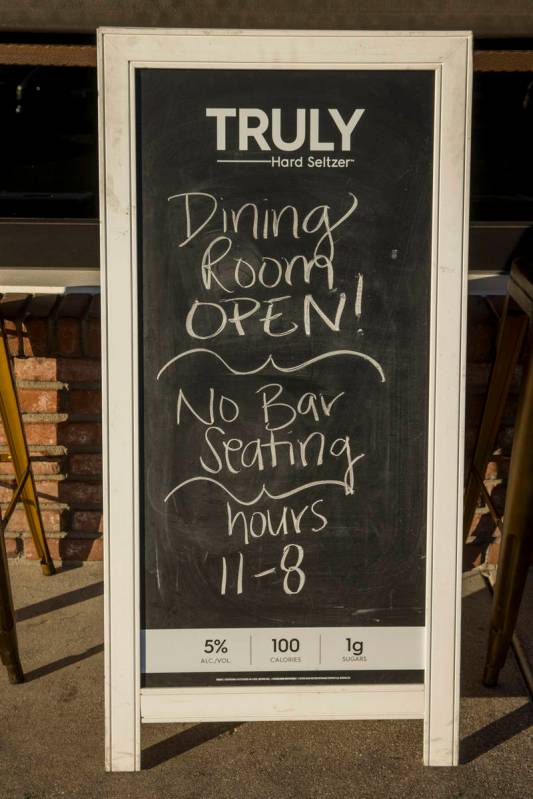 TRULY
Hard Seltzer™
Dining
Room
OPEN!
No Bar
Seating
hours
11-8
5% 100 1g
ALC./VOL. CALORIES SUGARS